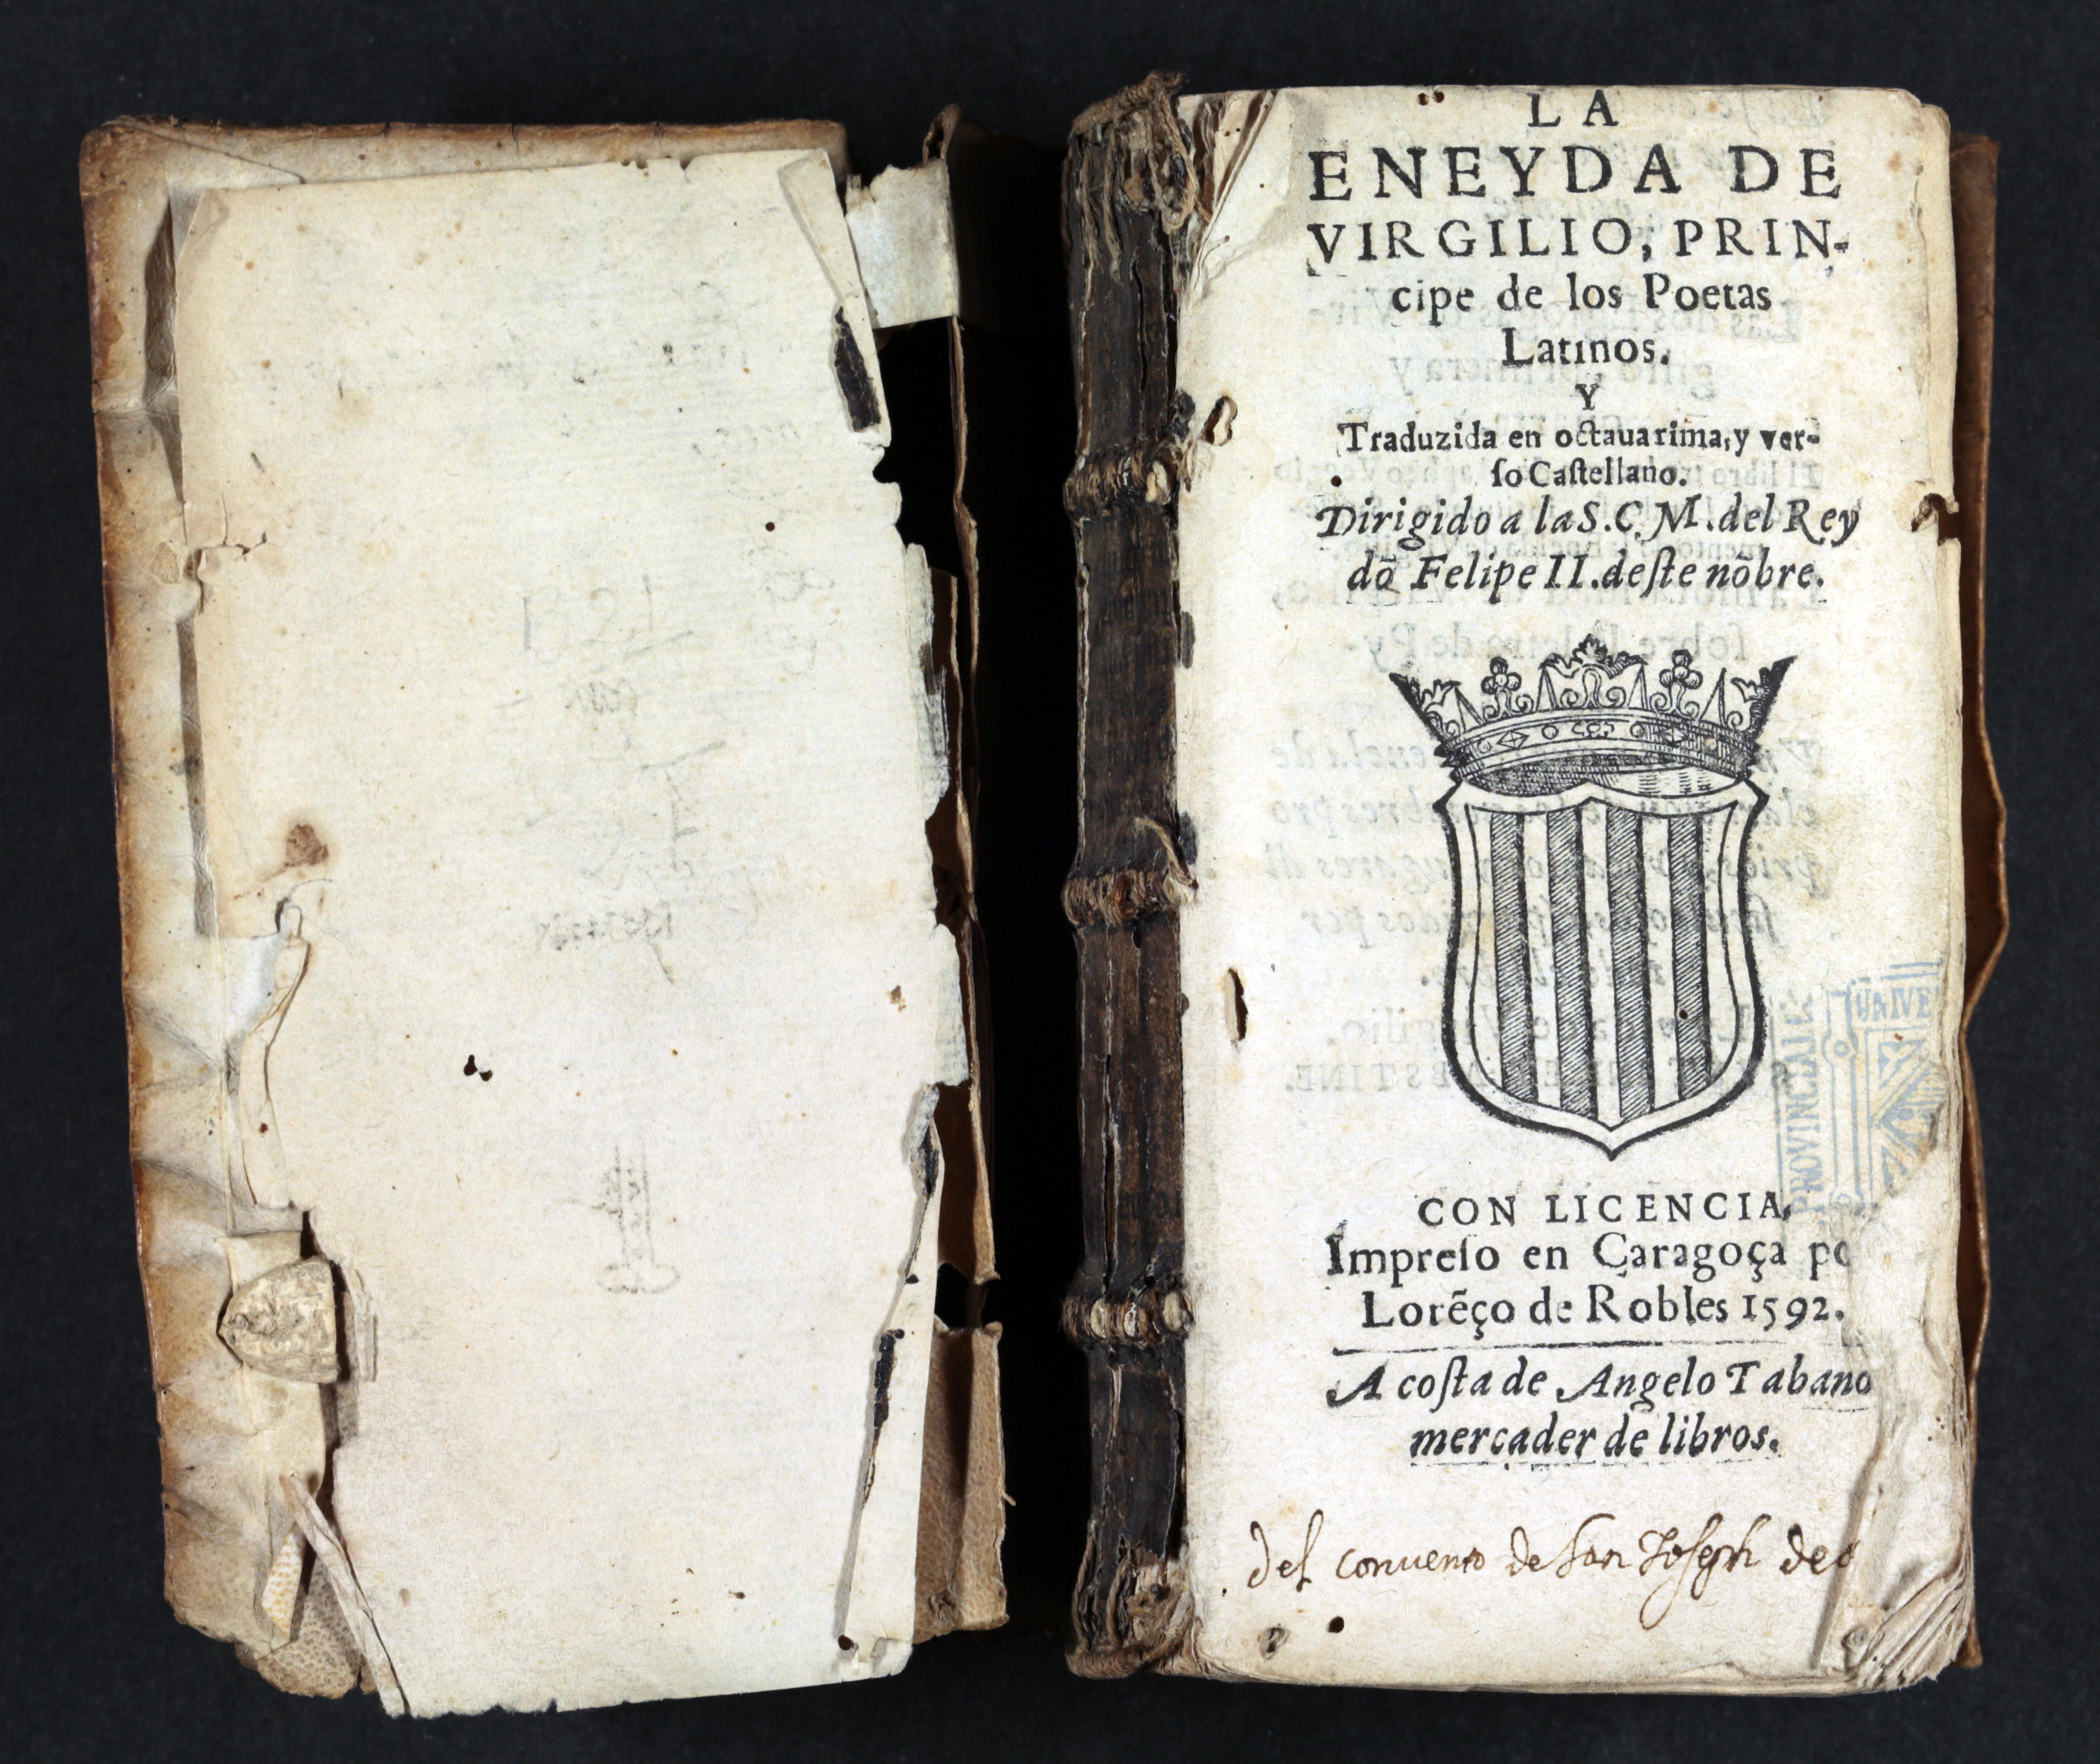 LA
ENEYDA DE
VIRGILIO, PRIN-
cipe de los Poetas
Latinos.
Y
Traduzida en octaua rima, y ver-
ſo Caſtellano.
Dirigido a la S.C.M. del Rey
dõ Felipe II. deſte nõbre.
PROVINCIAL
UNIVE
CON LICENCIA,
Impreſo en Çaragoça po
Lorẽço de Robles 1592.
A coſta de Angelo Tabano
mercader de libros.
del conuento de San Joseph de